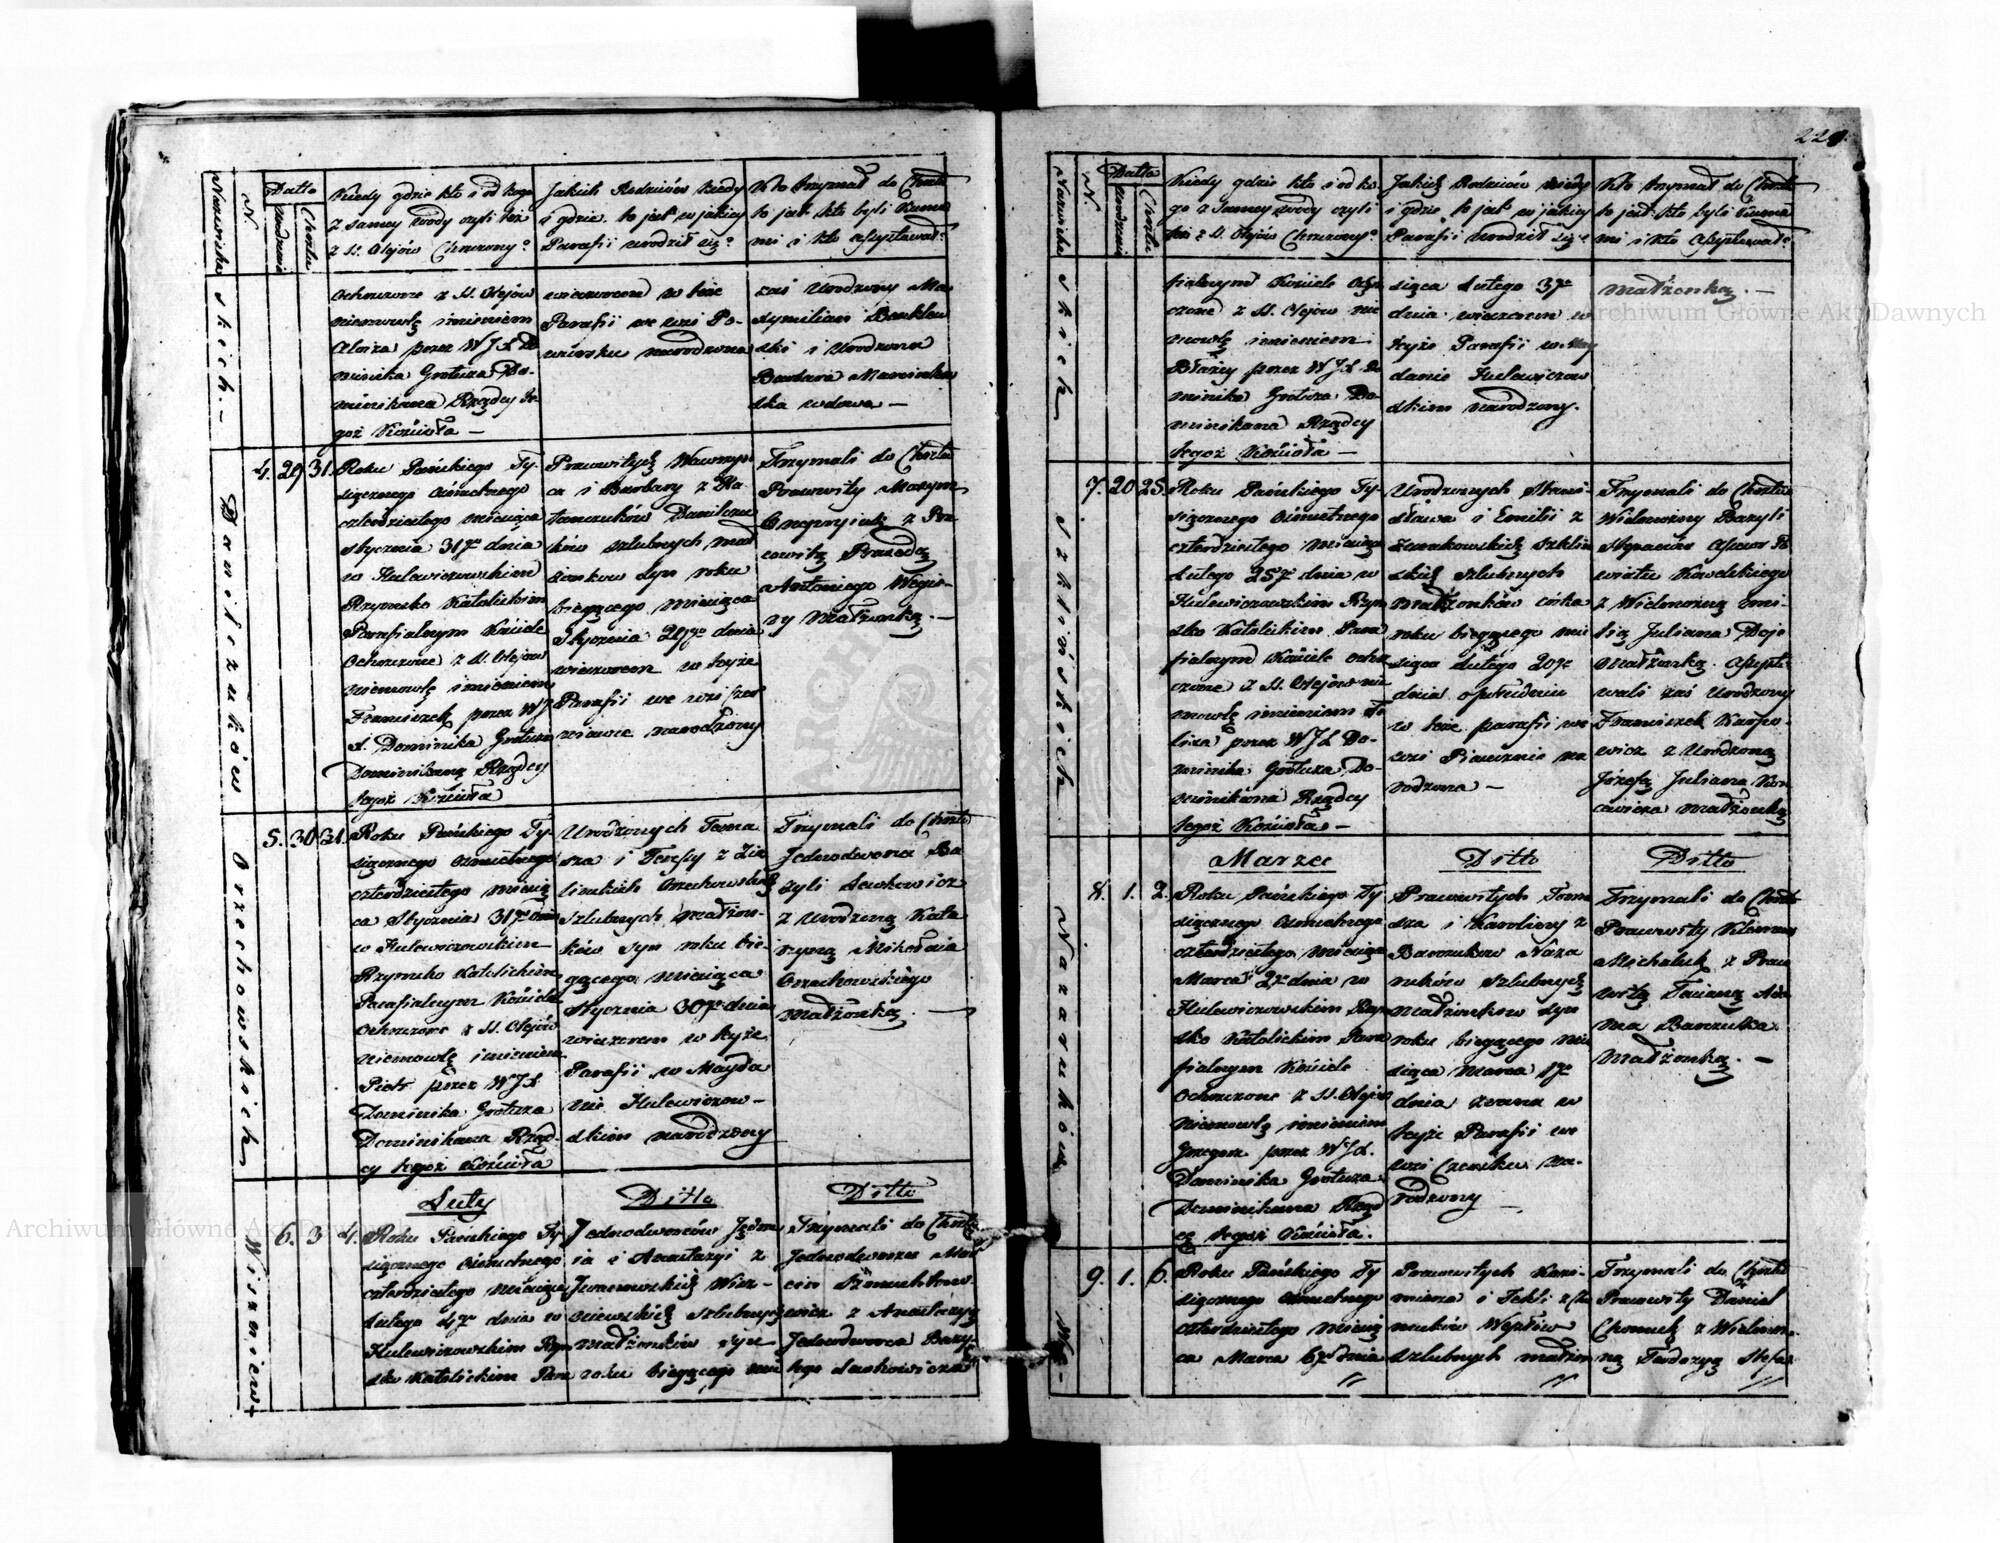 Nazwiska
N.
Datta
Urodzenia
Chrztu
Kiedy gdzie kto i od kogo
z samey wody czyli też
z S. Olejów Chrzczony?
Jakich Rodziców kiedy
i gdzie to jest w jakiey
Parafii urodził się?
Kto trzymał do Chrztu
to jest kto byli Kuma
mi i kto assystował?
skich. —
Ochrzczone z SS. Olejów
niemowlę imieniem
przez WJX Do
minika Grotuza Do-
minikana Rządcy te-
goż Kościoła —
wieczorem w teże
Parafii we wsi
narodzona
zaś Urodzony Ma-
xymilian
ski i Urodzona
Barbara
ska wdowa —
Daniłczuków
4. 29 31.
Roku Pańskiego Ty-
siącznego Ośmsetnego
czterdziestego miesiąca
Stycznia 31go dnia
w Hulewiczowskim
Rzymsko Katolickim
Parafialnym Kościele
Ochrzczone z SS. Olejów
niemowlę imieniem
Franciszek przez WJ
X. Dominika Grotuza
Dominikana Rządcy
tegoż Kościoła
Prawowitych Wawrzyń
ca i Barbary z
Daniłczu
ków szlubnych mał
żonków syn roku
biegącego miesiąca
Stycznia 29go dnia
wieczorem w teyże
Parafii we wsi
narodzony
Trzymali do Chrztu
Prawowity
z Pra
wowitą
Antoniego
ry Małżonką. —
Orzechowskich
5. 30 31.
Roku Pańskiego Ty-
siącznego Ośmsetnego
czterdziestego miesią
ca Stycznia 31go dnia
w Hulewiczowskim
Rzymsko Katolickim
Parafialnym Kościele
Ochrzczone z SS. Olejów
niemowlę imieniem
Piotr przez WJX
Dominika Grotuza
Dominikana Rząd-
cy tegoż Kościoła
Urodzonych
i Teressy z
Orzechowskich
szlubnych małżon-
ków syn roku bie-
gącego miesiąca
Stycznia 30go dnia
wieczorem w teyże
Parafii w Mayda
nie Hulewiczow-
skim narodzony
Trzymali do Chrztu
Jednodworzec Ba
zyli Lewkowicz
z Urodzoną Kata
rzyną Mikołaia
Orzechowskiego
Małżonką. —
Wiszniew-
Luty
Ditto
Ditto
6. 3 4.
Roku Pańskiego Ty-
siącznego Ośmsetnego
czterdziestego miesiąca
Lutego 4go dnia w
Hulewiczowskim Rzym
sko Katolickim Para
Jednodworców
i Anastazyi z
Wisz-
niewskich szlubnych
małżonków syn
roku biegącego mie
Trzymali do Chrztu
Jednodworzec Mar
cin
wicz z Anastazyą
Jednodworca Bazy-
lego Lewkowicza
229.
Nazwiska
N.
Datta
Urodzenia
Chrztu
Kiedy gdzie kto i od ko
go z samey wody czyli
też z S. Olejów Chrzczony?
Jakich Rodziców kiedy
i gdzie to jest w jakiey
Parafii urodził się?
Kto trzymał do Chrztu
to jest kto byli Kuma
mi i kto Assystował?
skich
fialnym Kościele Ochrz
czone z SS. Olejów nie
mowlę imieniem
Błażey przez WJX Do
minika Grotuza Do-
minikana Rządcy
tegoż Kościoła —
siąca Lutego 3go
dnia wieczorem w
teyże Parafii w May
danie Hulewiczow
skim narodzony.
Małżonką. —
Szklińskich
7. 20 25.
Roku Pańskiego Ty-
siącznego Ośmsetnego
czterdziestego miesiąca
Lutego 25go dnia w
Hulewiczowskim Rzym
sko Katolickim Para
fialnym Kościele ochrz
czone z SS. Olejów nie
mowlę imieniem
przez WJX Do-
minika Grotuza Do-
minikana Rządcy
tegoż Kościoła —
Urodzonych Stani-
sława i Emilii z
Szkliń
skich szlubnych
małżonków córka
roku biegącego mie
siąca Lutego 20go
dnia o południu
w teże parafii we
wsi na
rodzona —
Trzymali do Chrztu
Wielmożny Bazyli
Assesor Po
wiatu Kowelskiego
z Wielmożną Emi-
lią Juliana
Małżonką. Assysto-
wali zaś Urodzony
Franciszek Karpo-
wicz z Urodzoną
Józefą Juliana
Małżonką
Nazaruków
Marzec
Ditto
Ditto
8. 1. 2.
Roku Pańskiego Ty
siącznego Ośmsetnego
czterdziestego miesiąca
Marca 2go dnia w
Hulewiczowskim Rzym
sko Katolickim Para
fialnym Kościele
Ochrzczone z SS. Olejów
niemowlę imieniem
Grzegorz przez WJX.
Dominika Grotuza
Dominikana Rząd
cę tegoż Kościoła.
Prawowitych Toma
sza i Karoliny z
Naza
ruków szlubnych
Małżonków syn
roku biegącego mie
siąca Marca 1go
dnia zrana w
teyże Parafii we
wsi na-
rodzony —
Trzymali do Chrztu
Prawowity
Michaluk z Praw
witą Ada
ma
Małżonką. —
9. 1. 6.
Roku Pańskiego Ty
siącznego Ośmsetnego
czterdziestego miesią
ca Marca 6go dnia
Prawowitych Kazi-
mierza i Tekli z
szlubnych małżon
Trzymali do Chrztu
Prawowity Daniel
z Wielmo-
żną Teodozyą Stefa-
Archiwum Główne Akt Dawnych
Archiwum Główne Akt Dawnych